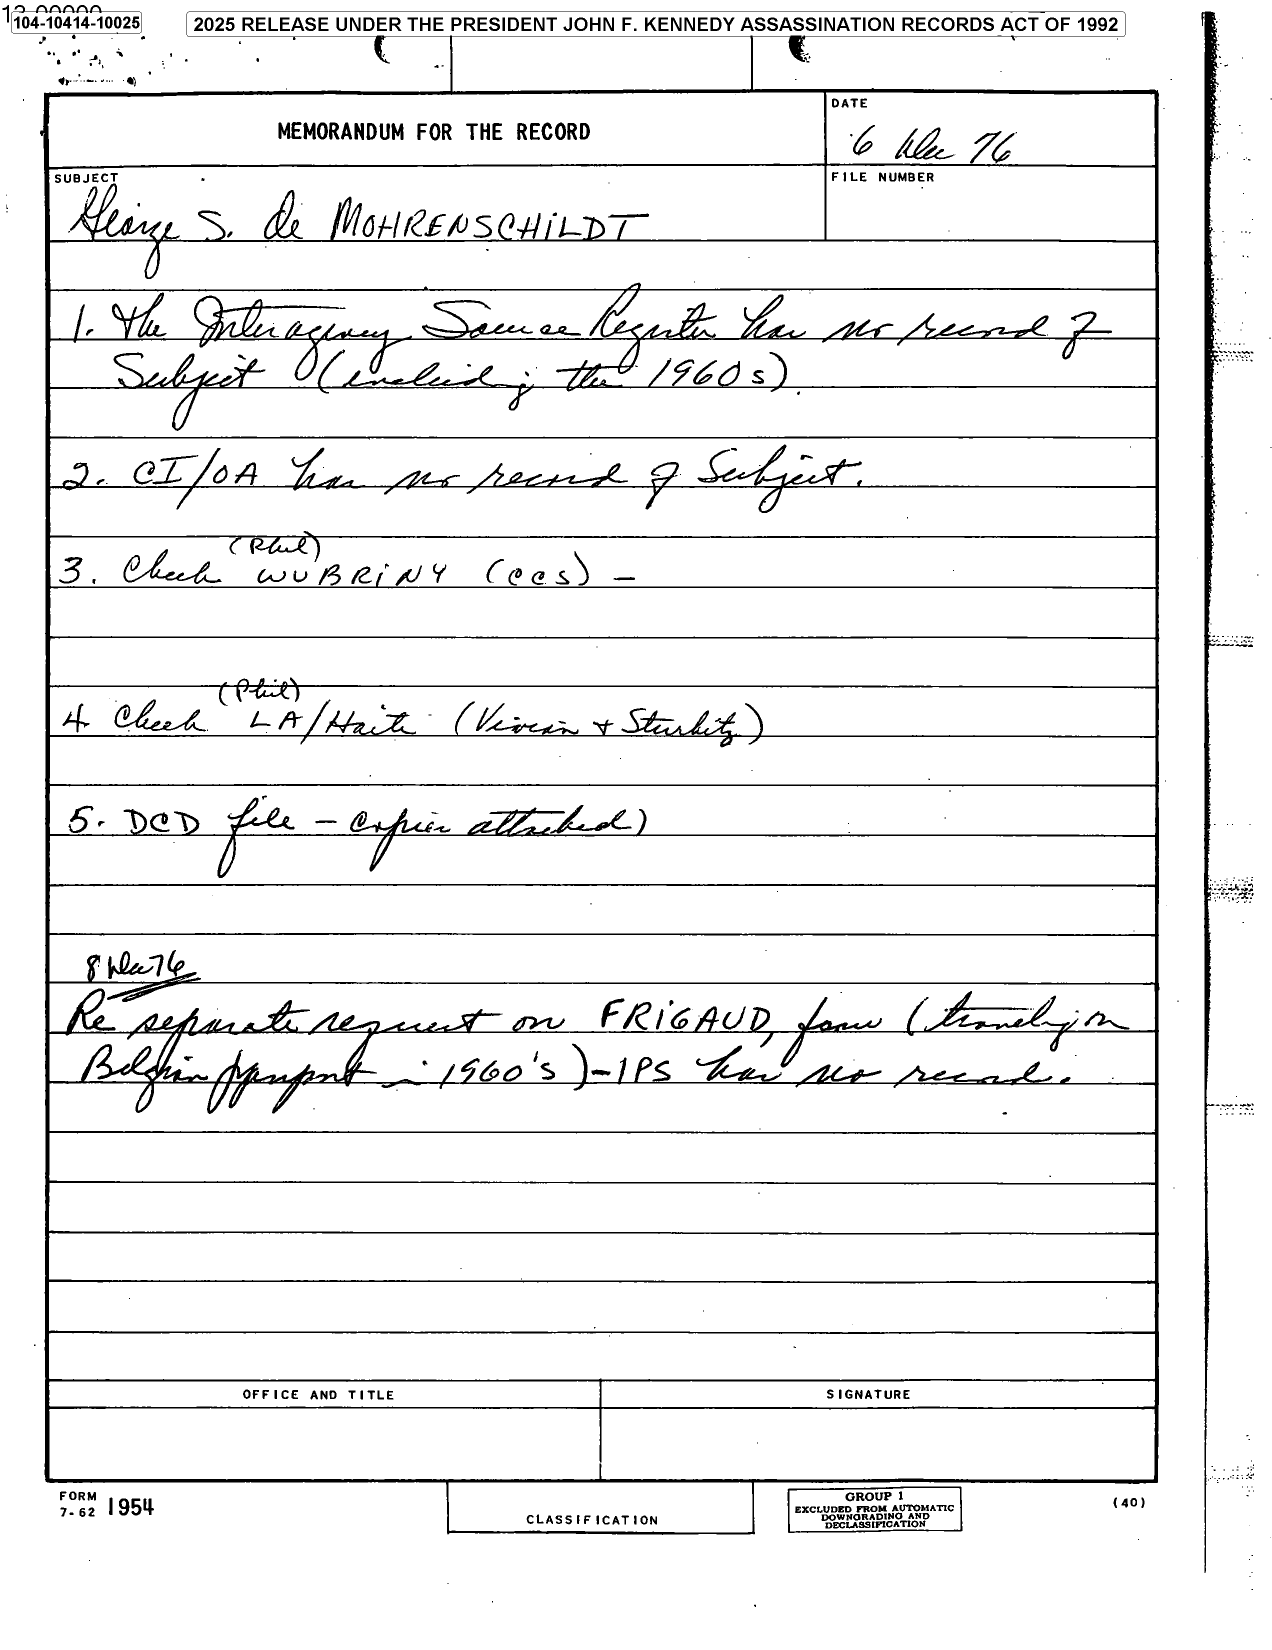 104-10414-10025
2025 RELEASE UNDER THE PRESIDENT JOHN F. KENNEDY ASSASSINATION RECORDS ACT OF 1992
MEMORANDUM FOR THE RECORD
DATE
6 Dec 76
SUBJECT
FILE NUMBER
George S. de MOHRENSCHiLDT
1. The Interagency Source Register has no record of
Subject (including the 1960s).
2. CI/OA has no record of Subject.
(Phil)
3. Check WUBRiNY (CCS) -
(Phil)
4 Check LA/Haiti (Vivian + Sturbitz)
5. DCD file - Copies attached)
8 Dec 76
Re separate request on FRiGAUD, (traveling on
Belgian passport in 1960's) - IPS has no record.
OFFICE AND TITLE
SIGNATURE
FORM
7-62 1954
CLASSIFICATION
GROUP 1
EXCLUDED FROM AUTOMATIC
DOWNGRADING AND
DECLASSIFICATION
(40)